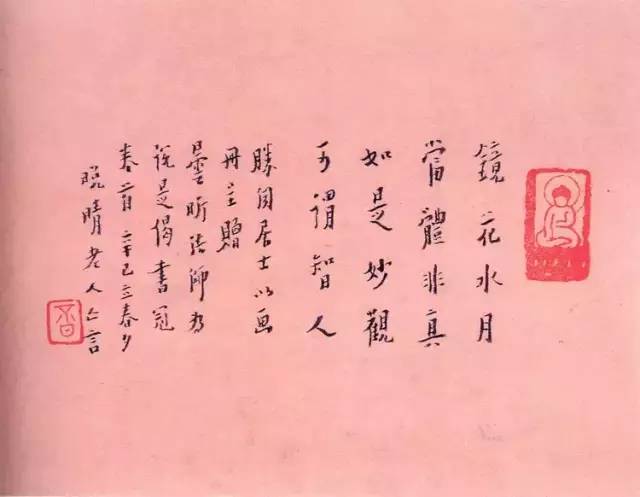 鏡花水月
當體非真
如是妙觀
可謂智人
勝閏居士以画
冊呈贈
曇昕法師为
說是偈書冠
卷首 辛巳立春夕
晚晴老人亡言